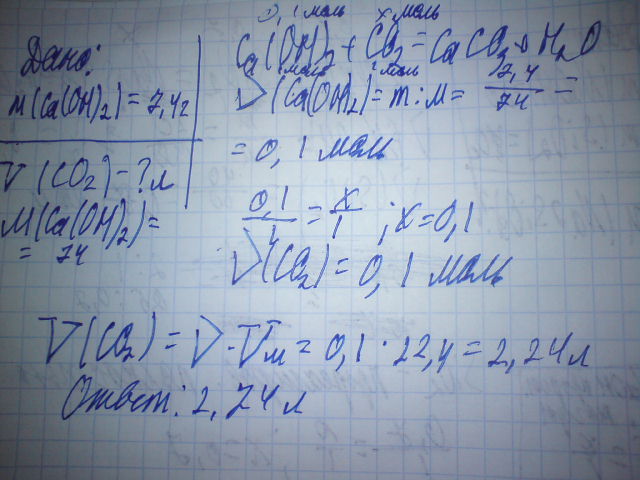 Дано:
m(Ca(OH)2) = 7,4г
V(CO2) - ? л
M(Ca(OH)2) =
= 74
0,1 моль x моль
Ca(OH)2 + CO2 = CaCO3 + H2O
1 моль 1 моль
ν(Ca(OH)2) = m : M = 7,4/74 =
= 0,1 моль
0,1/1 = x/1 ; x = 0,1
ν(CO2) = 0,1 моль
V(CO2) = ν · Vm = 0,1 · 22,4 = 2,24л
Ответ: 2,24л